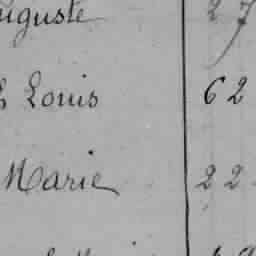 Auguste 27
Louis 62
Marie 22